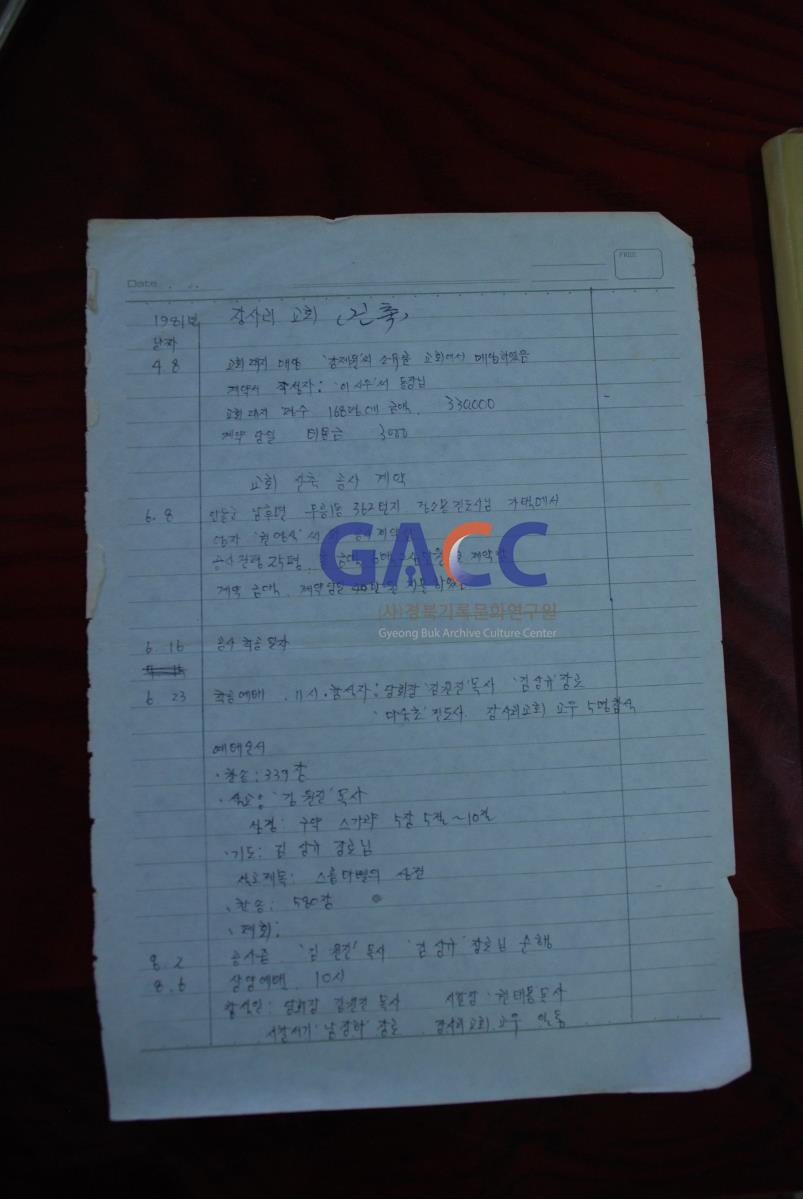 Date . . .
FREE
1981년 강사리 교회 (건축)
날자
4. 8 교회 대지 매입 소유를 교회에서 매입하였음
계약서 작성자: '이 서 동장님
교회 대지 평수 168평 금액. 330,000
계약 당일 지불금
교회 건축 공사 계약
6. 8 남후면 무릉1동 362번지 전도사님 자택에서
계약
공사 건평 25평. 계약
계약 금액. 계약 지불
GACC
(사)경북기록문화연구원
Gyeong Buk Archive Culture Center
6. 16 공사 착공
6. 23 착공예배. 11시. 참석자: 당회장 '김원진' 목사 '김상규' 장로
전도사. 강사리교회 교우 5명 참석
예배순서
·찬송: 339장
· '김원진' 목사
성경: 구약 스가랴 5장 5절~10절
·기도: 김상규 장로님
설교제목: 스룹바벨의 성전
·찬송: 580장
·폐회:
8. 2 '김원진' 목사 '김상규' 장로님
8. 6 상량예배. 10시
참석인: 당회장 김원진 목사 시찰장: 목사
시찰서기 장로 강사리교회 교우 일동